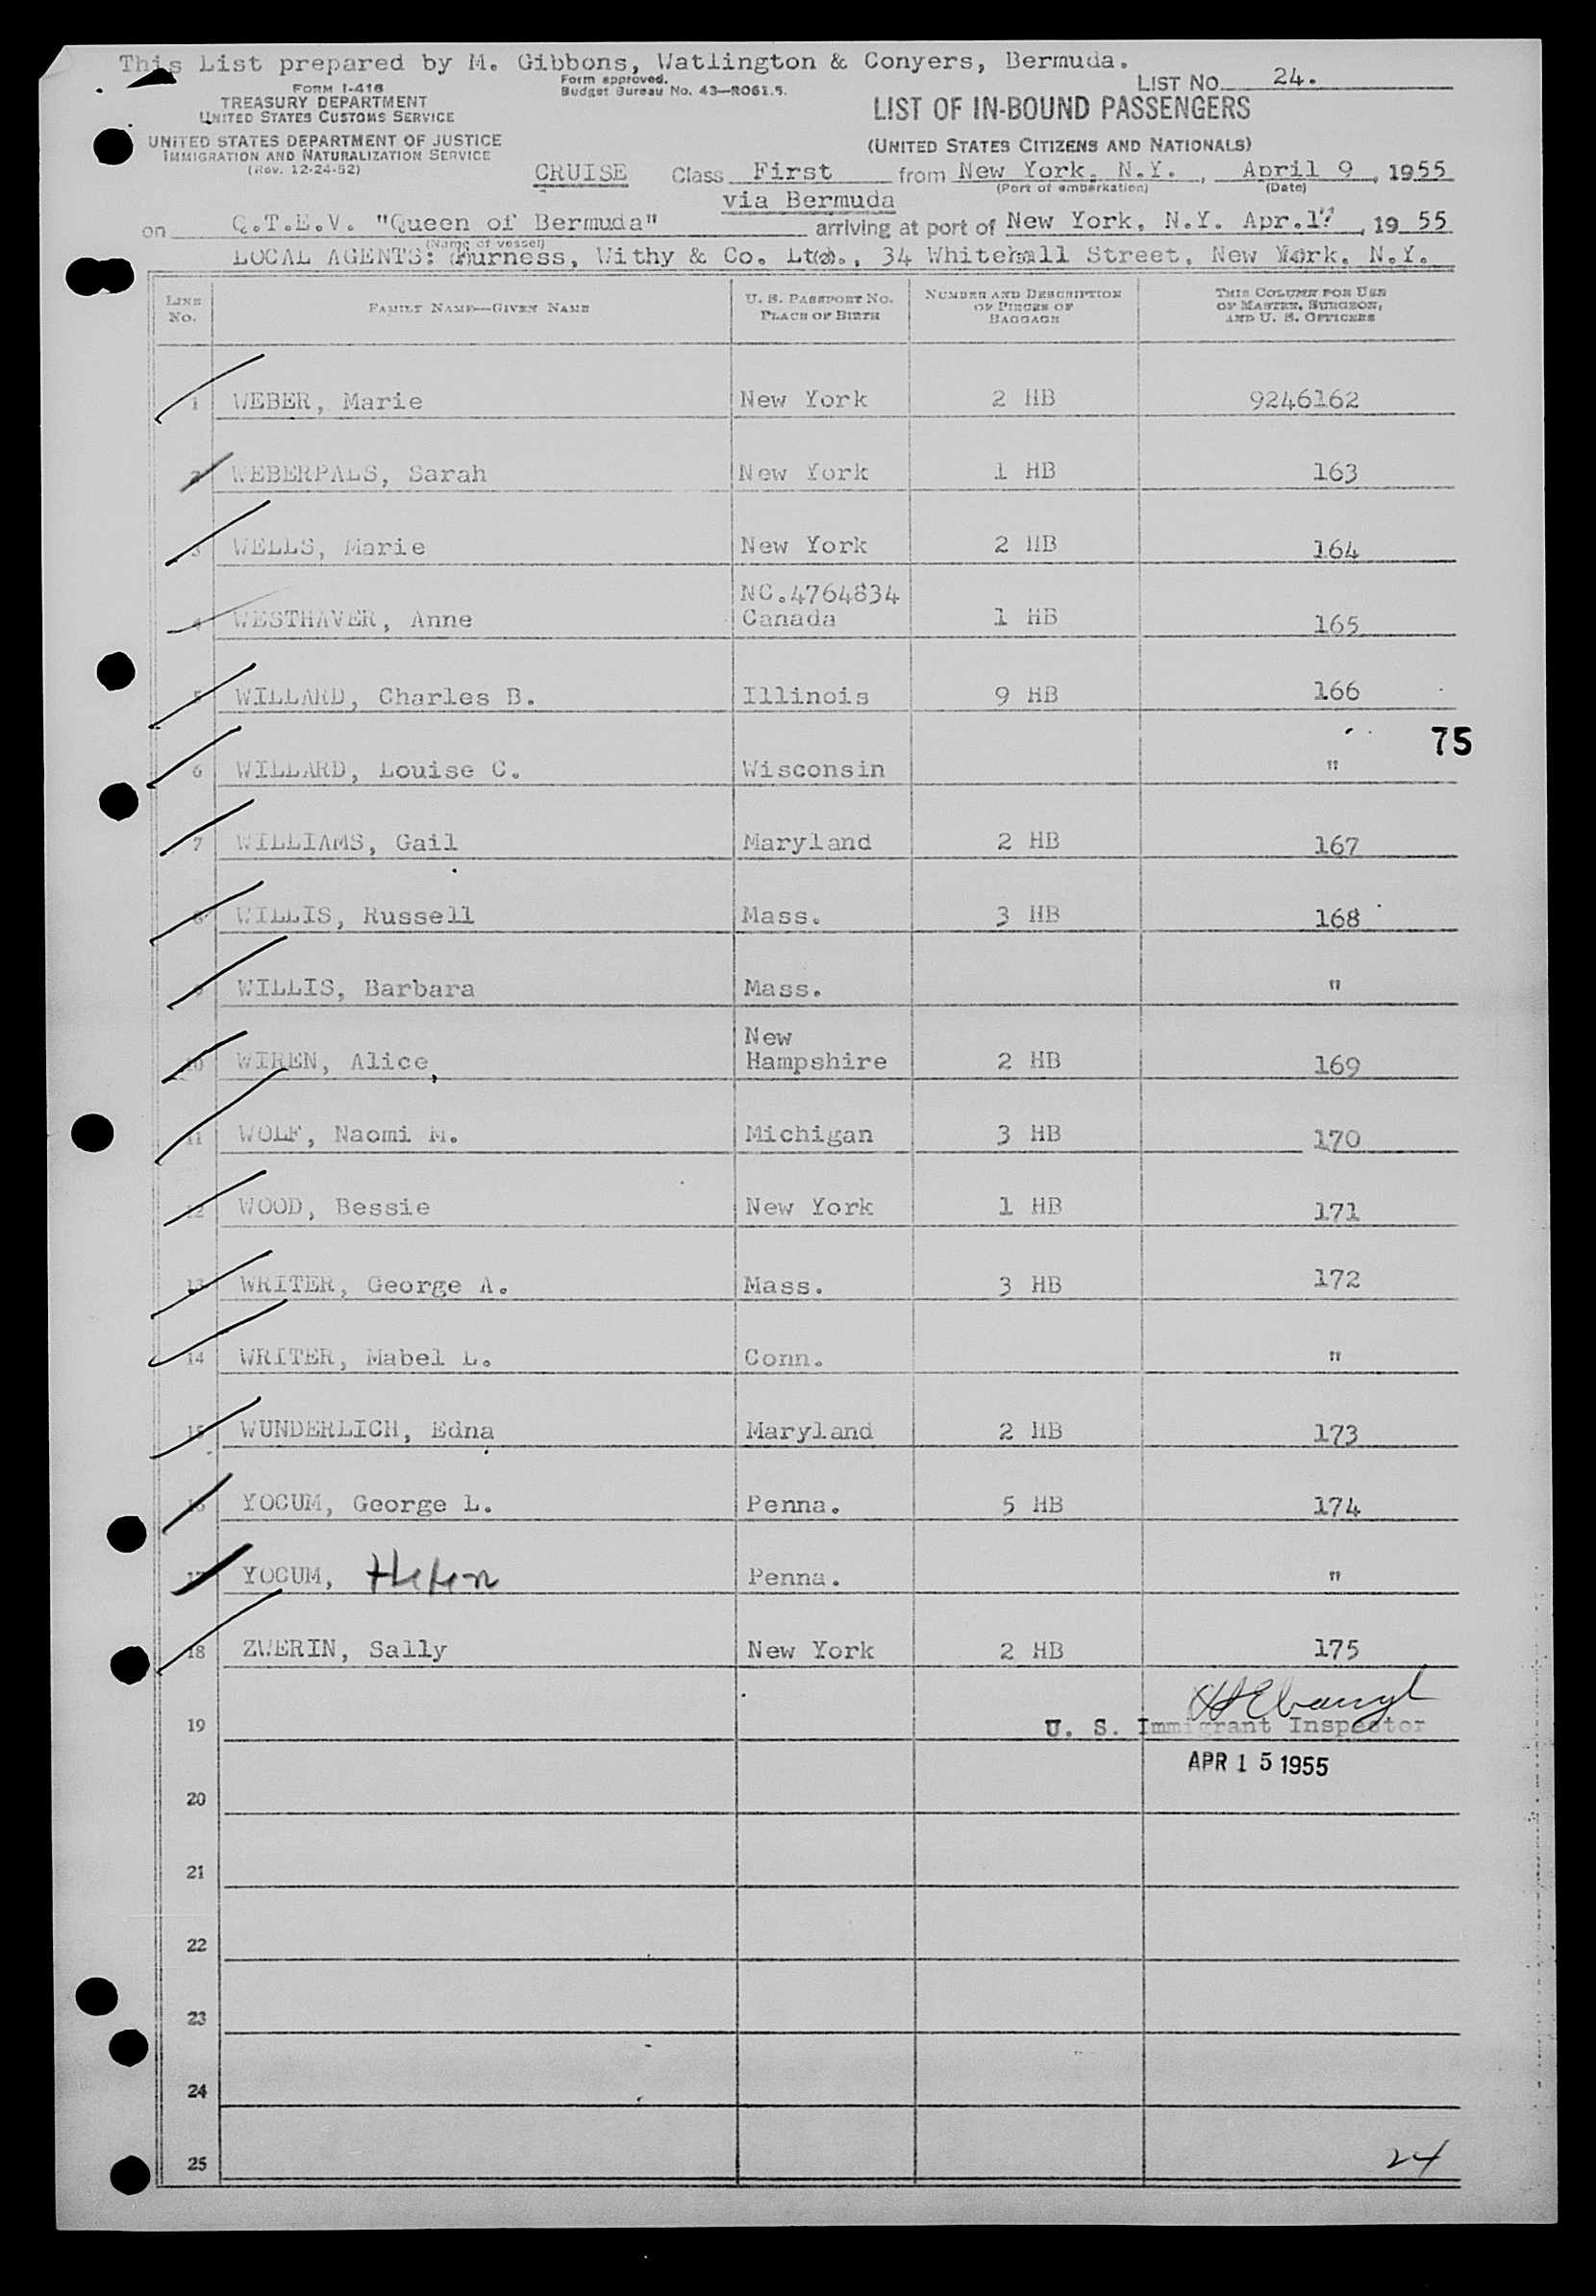 This List prepared by M. Gibbons, Watlington & Conyers, Bermuda.
FORM I-416
TREASURY DEPARTMENT
UNITED STATES CUSTOMS SERVICE
UNITED STATES DEPARTMENT OF JUSTICE
IMMIGRATION AND NATURALIZATION SERVICE
(Rev. 12-24-52)
Form approved.
Budget Bureau No. 43—R061.5.
LIST NO. 24.
LIST OF IN-BOUND PASSENGERS
(UNITED STATES CITIZENS AND NATIONALS)
CRUISE Class First from New York, N.Y., April 9, 1955
(Port of embarkation) (Date)
via Bermuda
on Q.T.E.V. "Queen of Bermuda" arriving at port of New York, N.Y. Apr. , 1955
(Name of vessel)
LOCAL AGENTS: Furness, Withy & Co. Ltd., 34 Whitehall Street, New York, N.Y.
LINE NO. FAMILY NAME—GIVEN NAME U. S. PASSPORT NO. PLACE OF BIRTH NUMBER AND DESCRIPTION OF PIECES OF BAGGAGE THIS COLUMN FOR USE OF MASTER, SURGEON, AND U. S. OFFICERS
1 WEBER, Marie New York 2 HB 9246162
2 WEBERPALS, Sarah New York 1 HB 163
3 WELLS, Marie New York 2 HB 164
NC.4764834
4 WESTHAVER, Anne Canada 1 HB 165
5 WILLARD, Charles B. Illinois 9 HB 166
75
6 WILLARD, Louise C. Wisconsin "
7 WILLIAMS, Gail Maryland 2 HB 167
8 WILLIS, Russell Mass. 3 HB 168
9 WILLIS, Barbara Mass. "
New
10 WIREN, Alice, Hampshire 2 HB 169
11 WOLF, Naomi M. Michigan 3 HB 170
12 WOOD, Bessie New York 1 HB 171
13 WRITER, George A. Mass. 3 HB 172
14 WRITER, Mabel L. Conn. "
15 WUNDERLICH, Edna Maryland 2 HB 173
16 YOCUM, George L. Penna. 5 HB 174
17 YOCUM, Helen Penna. "
18 ZWERIN, Sally New York 2 HB 175
19 U. S. Immigrant Inspector
APR 15 1955
20
21
22
23
24
25
24